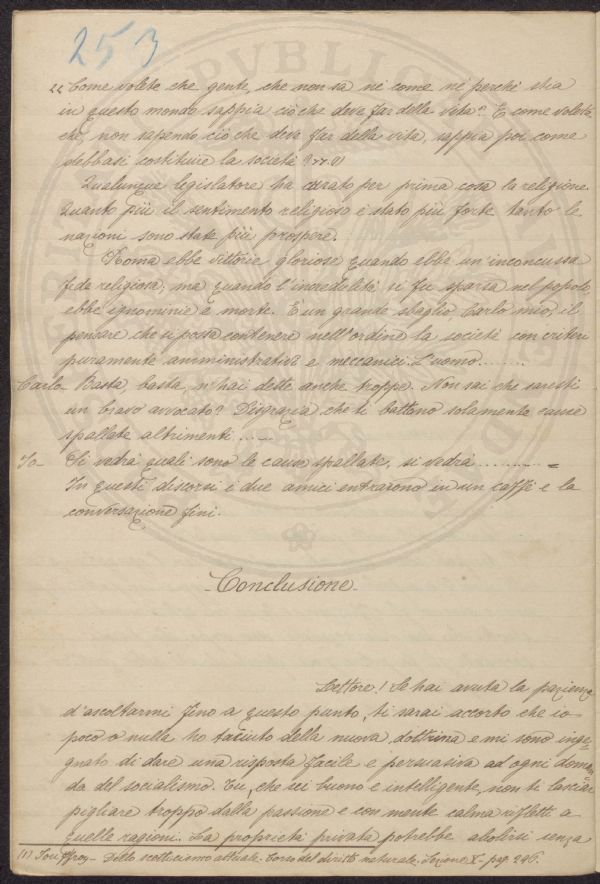 253
"Come volete che gente, che non sa nè come nè perchè stia
in questo mondo sappia ciò che deve far della vita? E come volete
che, non sapendo ciò che deve far della vita, sappia poi come
debbasi costituire la società?" (1)
Qualunque legislatore ha curato per prima cosa la religione.
Quanto più il sentimento religioso è stato più forte tanto le
nazioni sono state più prospere.
Roma ebbe vittorie gloriose quando ebbe un'inconcussa
fede religiosa; ma quando l'incredulità si fu sparsa nel popolo
ebbe ignominie e morte. È un grande sbaglio, Carlo mio, il
pensare che si possa contenere nell'ordine la società con criteri
puramente amministrativi e meccanici. L'uomo........
Carlo - Basta, basta, n'hai dette anche troppe. Non sai che saresti
un bravo avvocato? Disgrazia che ti battono solamente cause
spallate altrimenti......
Io - Si vedrà quali sono le cause spallate, si vedrà......... =
In questi discorsi i due amici entrarono in un caffè e la
conversazione finì.
- Conclusione -
Lettore! Se hai avuta la pazienza
d'ascoltarmi fino a questo punto, ti sarai accorto che io
poco o nulla ho taciuto della nuova dottrina e mi sono inge-
gnato di dare una risposta facile e persuasiva ad ogni doman-
da del socialismo. Tu, che sei buono e intelligente, non ti lasciar
pigliare troppo dalla passione e con mente calma rifletti a
quelle ragioni. La proprietà privata potrebbe abolirsi senza
(1) Jouffroy - Dello scetticismo attuale. Corso del diritto naturale. Lezione X - pag. 246.
PVBLICA